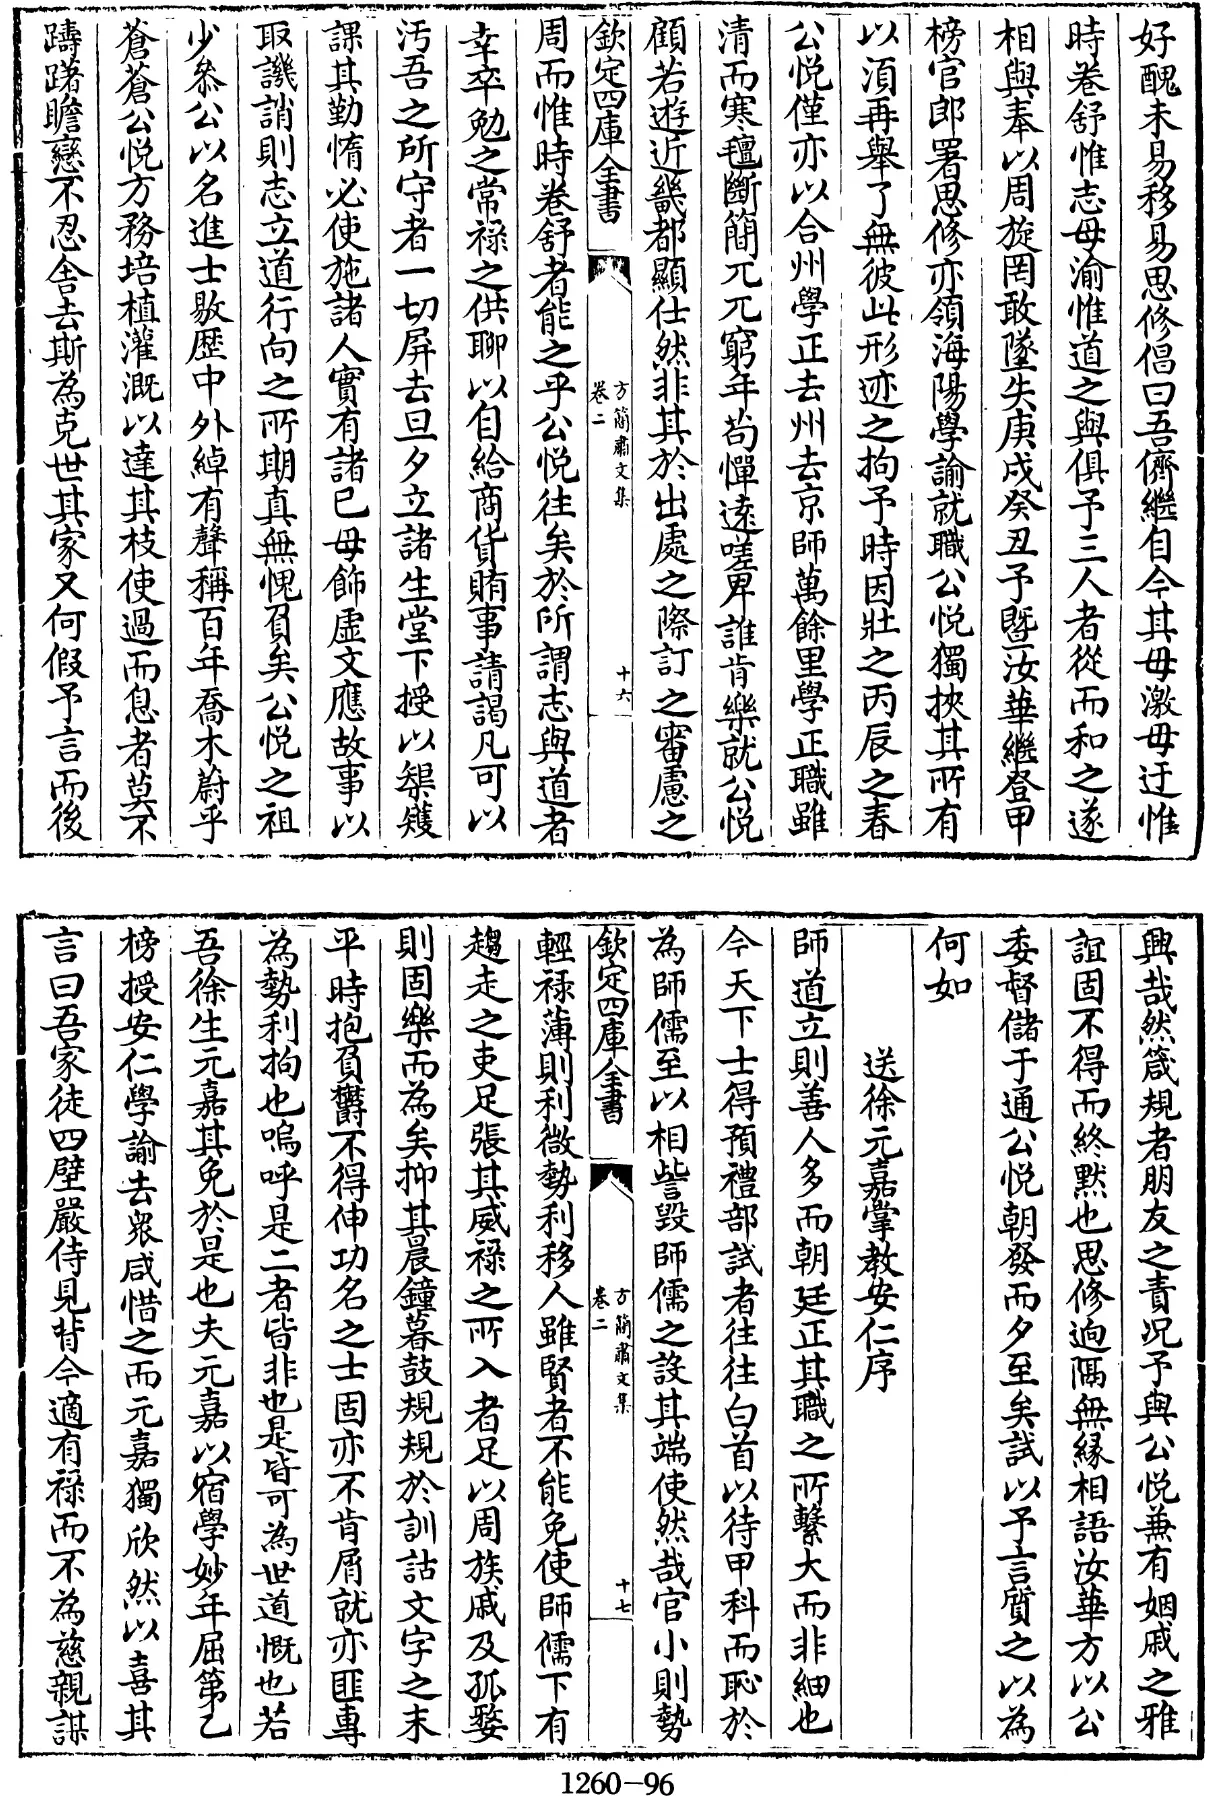 好醜未易移易思修倡曰吾儕繼自今其毋激毋迂惟
時卷舒惟志毋渝惟道之與俱予三人者從而和之遂
相與奉以周旋罔敢墜失庚戌癸丑予暨汝華繼登甲
榜官郎署思修亦領海陽學諭就職公悅獨挾其所有
以須再舉了無彼此形迹之拘予時因壯之丙辰之春
公悅僅亦以合州學正去州去京師萬餘里學正職雖
清而寒氊斷簡兀兀窮年茍憚遠嗟卑誰肯樂就公悅
顧若遊近畿都顯仕然非其於出處之際訂之審慮之
欽定四庫全書
方簡肅文集
卷二
十六
周而惟時卷舒者能之乎公悅往矣於所謂志與道者
幸卒勉之常祿之供聊以自給商貨賄事請謁凡可以
汚吾之所守者一切屏去旦夕立諸生堂下授以榘矱
課其勤惰必使施諸人實有諸已毋飾虛文應故事以
取譏誚則志立道行向之所期真無愧負矣公悅之祖
少叅公以名進士敭歷中外綽有聲稱百年喬木蔚乎
蒼蒼公悅方務培植灌溉以達其枝使過而息者莫不
躊躇瞻戀不忍舍去斯為克世其家又何假予言而後
興哉然箴規者朋友之責况予與公悅兼有姻戚之雅
誼固不得而終默也思修逈隔無緣相語汝華方以公
委督儲于通公悅朝發而夕至矣試以予言質之以為
何如
送徐元嘉掌教安仁序
師道立則善人多而朝廷正其職之所繫大而非細也
今天下士得預禮部試者往往白首以待甲科而恥於
為師儒至以相訾毀師儒之設其端使然哉官小則勢
欽定四庫全書
方簡肅文集
卷二
十七
輕祿薄則利微勢利移人雖賢者不能免使師儒下有
趨走之吏足張其威祿之所入者足以周族戚及孤嫠
則固樂而為矣抑其晨鐘暮鼓規規於訓詁文字之末
平時抱負鬱不得伸功名之士固亦不肯屑就亦匪專
為勢利拘也嗚呼是二者皆非也是皆可為世道慨也若
吾徐生元嘉其免於是也夫元嘉以宿學妙年屈第乙
榜授安仁學諭去衆咸惜之而元嘉獨欣然以喜其
言曰吾家徒四壁嚴侍見背今適有祿而不為慈親謀
1260-96